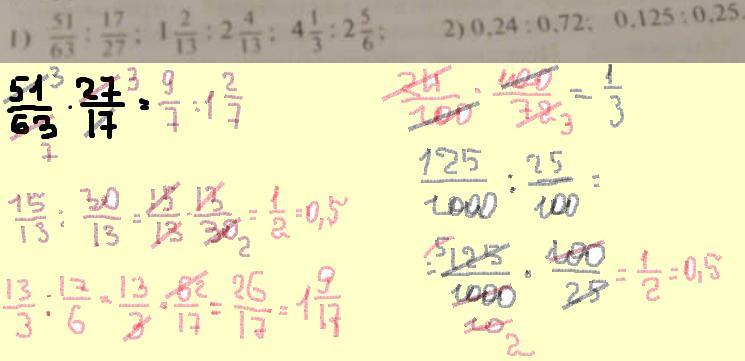 1) 51/63 : 17/27; 1 2/13 : 2 4/13; 4 1/3 : 2 5/6; 2) 0,24 : 0,72; 0,125 : 0,25.
51/63 · 27/17 = 9/7 = 1 2/7
3 3
7
15/13 : 30/13 = 15/13 · 13/30 = 1/2 = 0,5
2
13/3 : 17/6 = 13/3 · 62/17 = 26/17 = 1 9/17
24/100 · 100/72 = 1/3
3
125/1000 : 25/100 =
= 125/1000 · 100/25 = 1/2 = 0,5
5
10
2